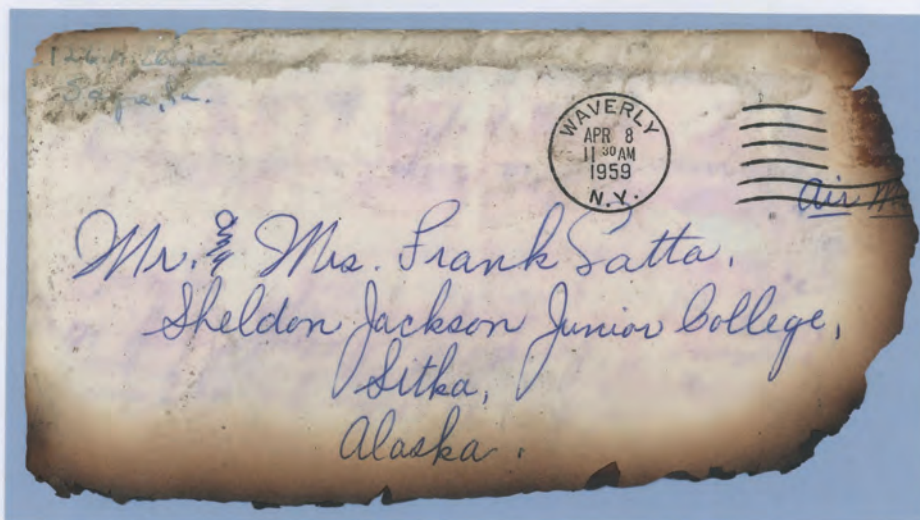 Sayre, Pa.
WAVERLY
APR 8
11 30 AM
1959
N.Y.
Air
Mr. & Mrs. Frank Satta.
Sheldon Jackson Junior College,
Sitka,
Alaska.